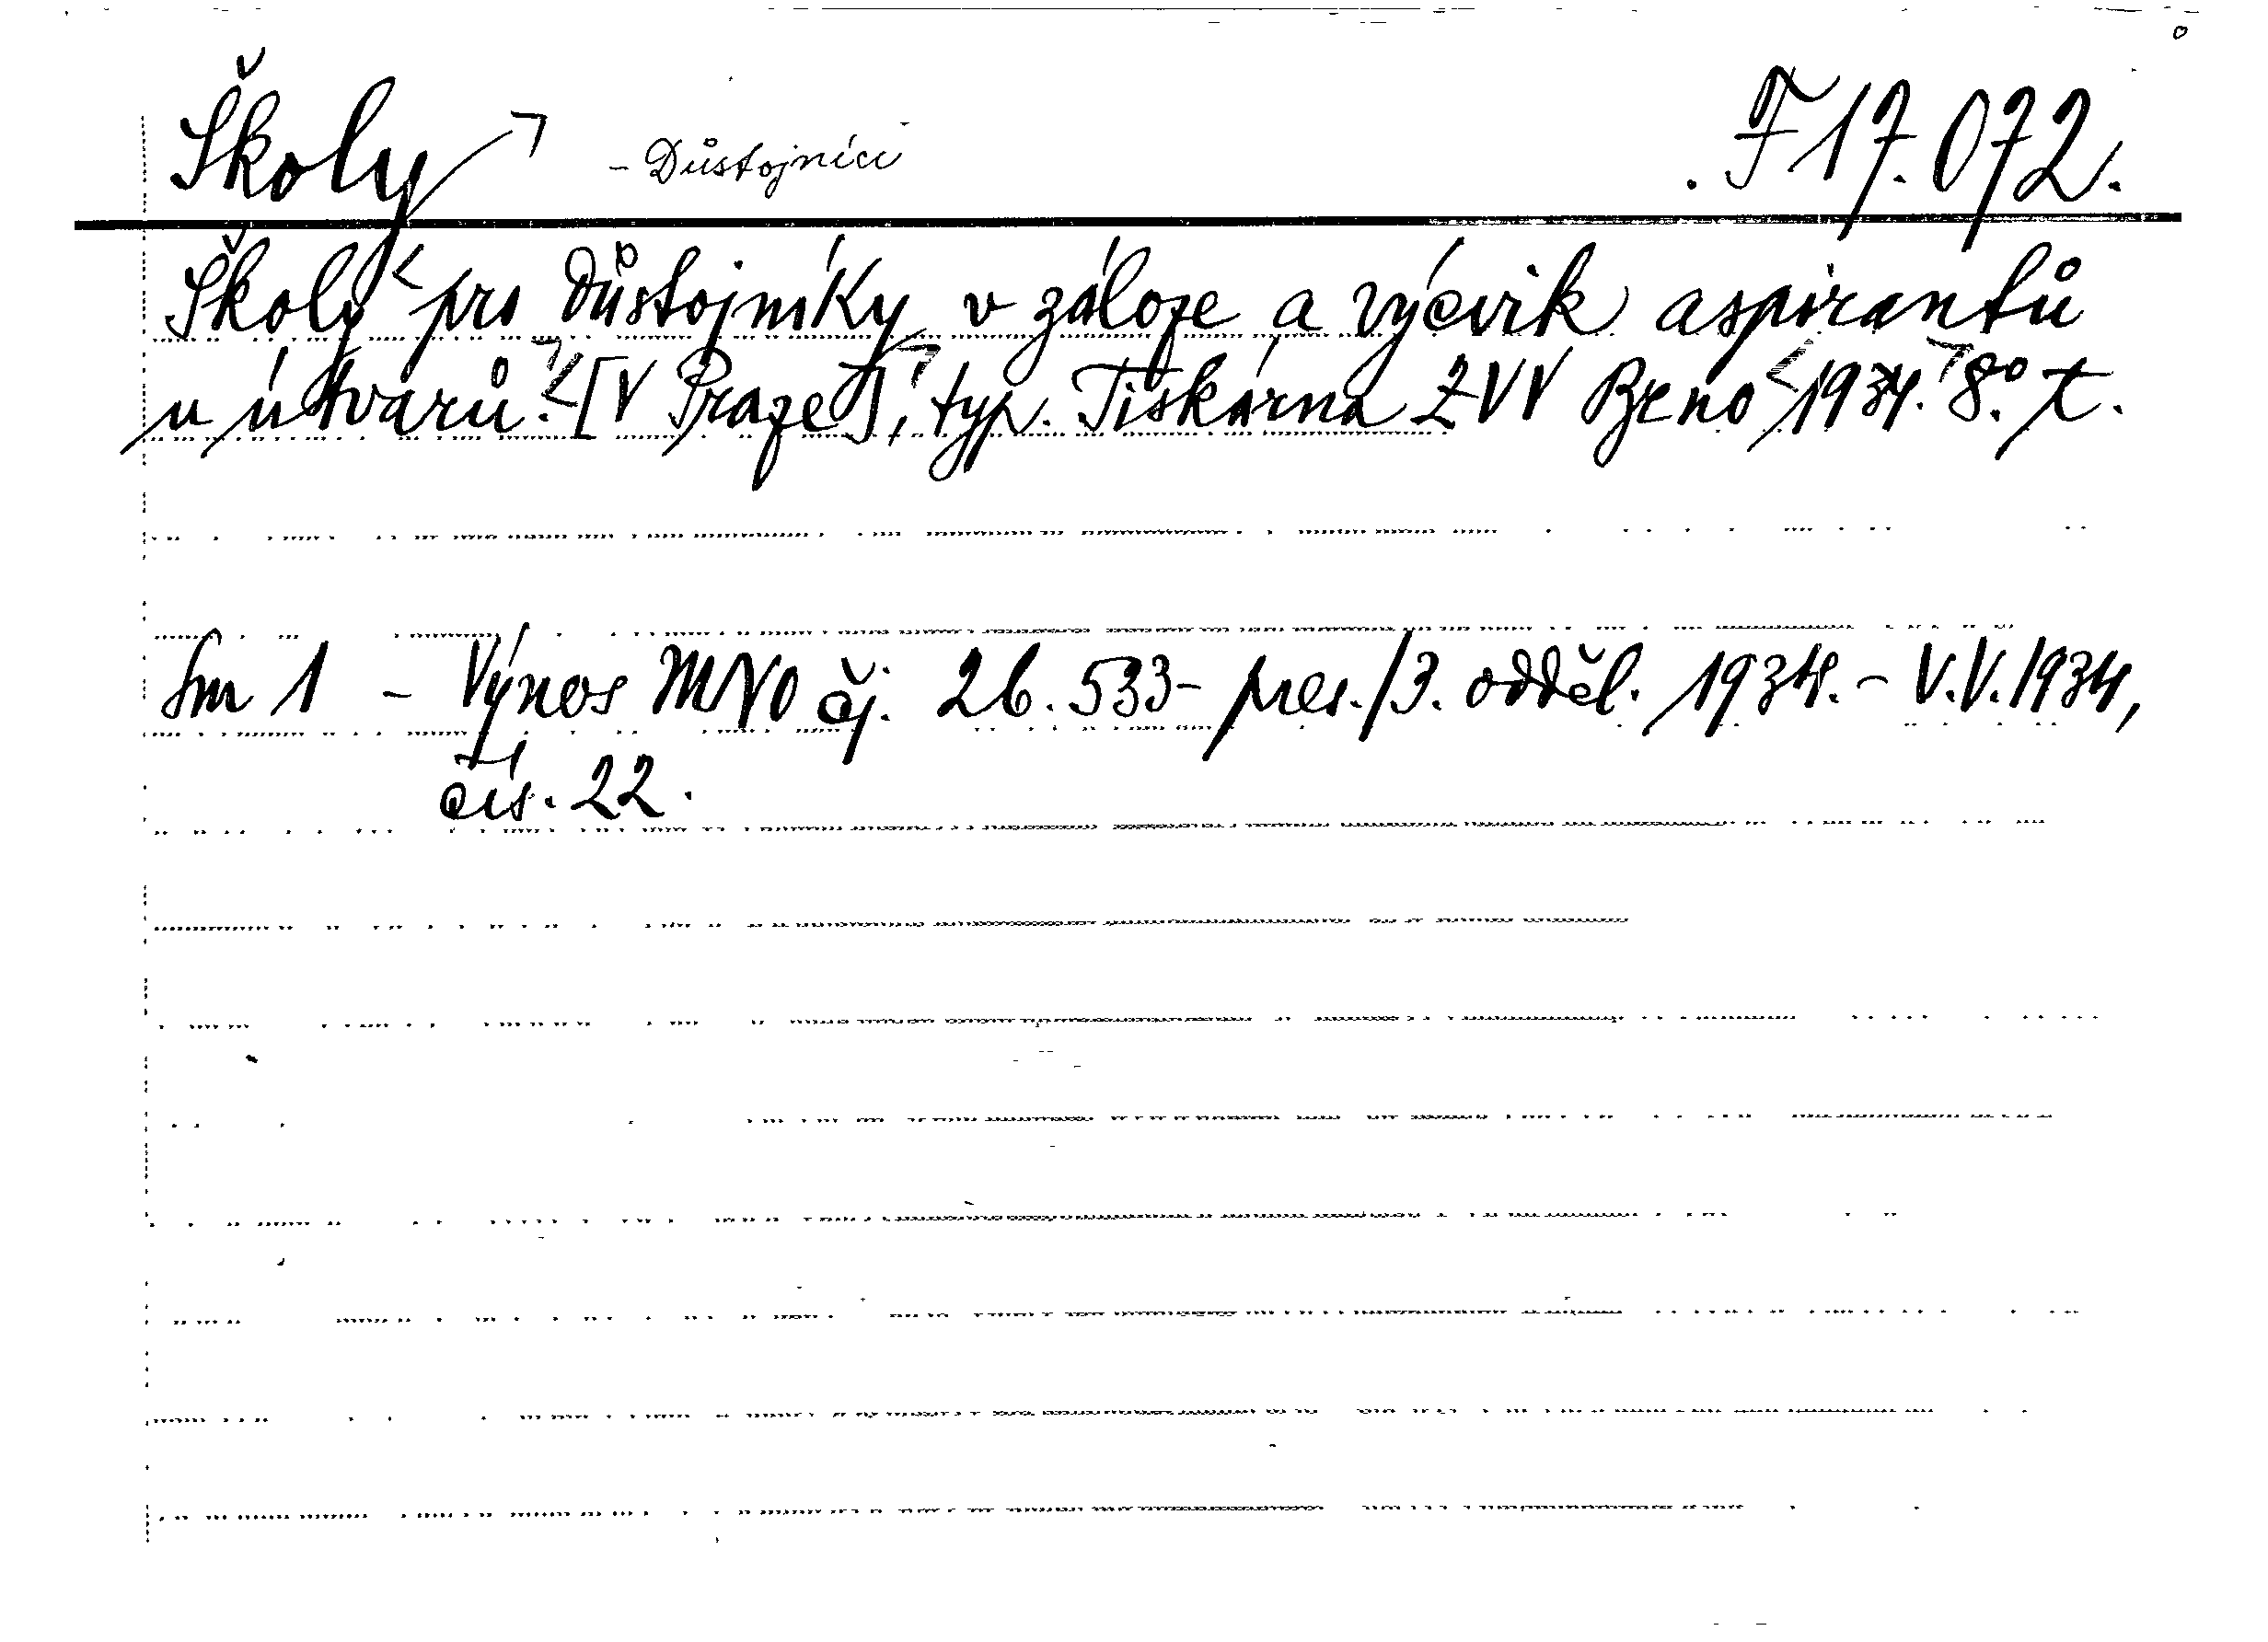 Školy - Důstojníci F 17.072.
Školy pro důstojníky v záloze a výcvik aspirantů
u útvarů. [V Praze], typ. Tiskárna ZVV Brno 1934. 8°. t.
Sm 1 - Výnos MNO čj. 26.533- pres./3. odděl. 1934. - V.V. 1934,
čís. 22.